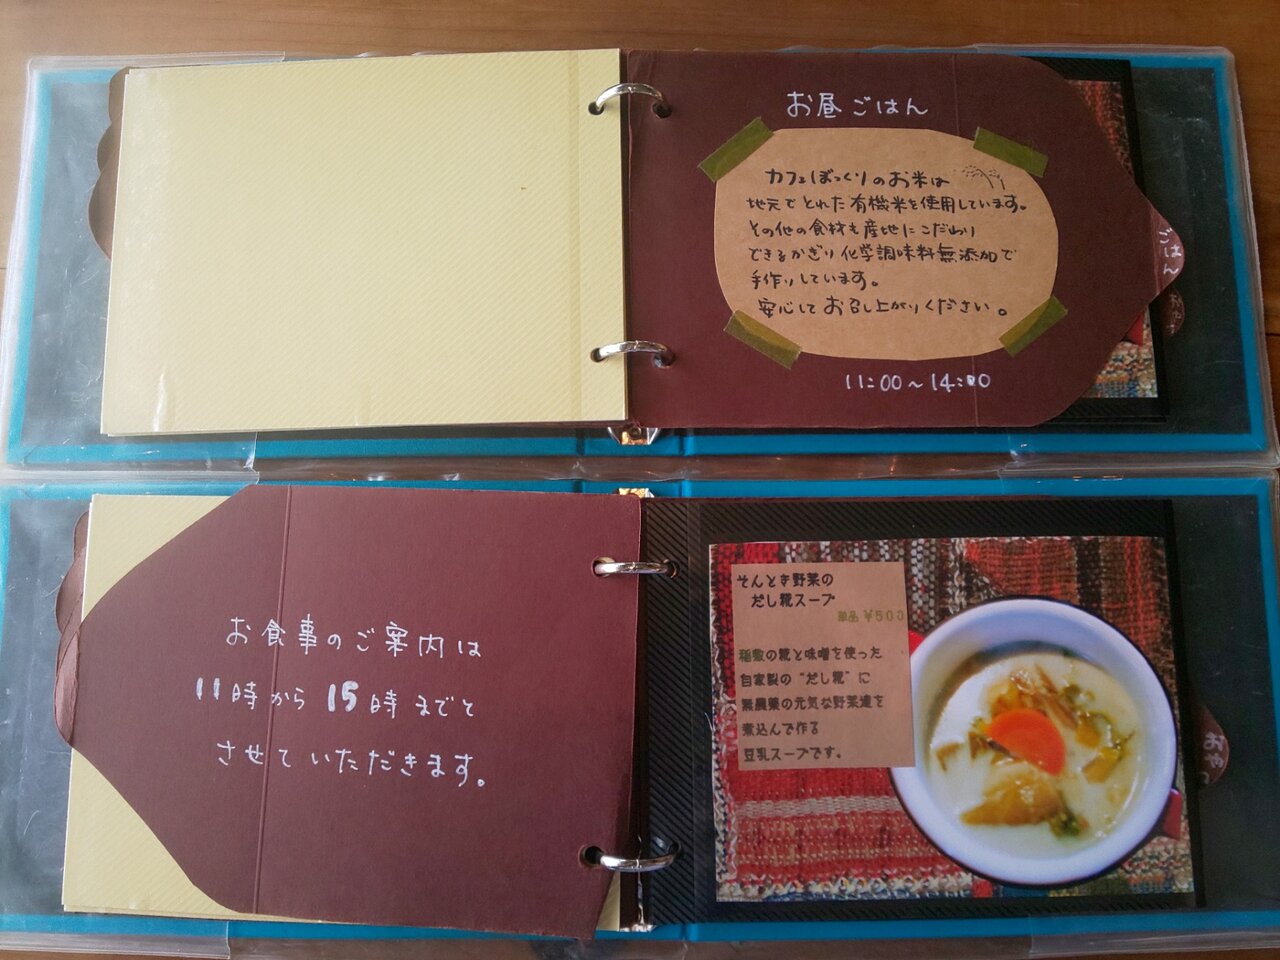 お昼ごはん
カフェぼっくりのお米は
地元でとれた有機米を使用しています。
その他の食材も産地にこだわり
できるかぎり化学調味料無添加で
手作りしています。
安心してお召し上がりください。
11:00～14:00
ごはん
お食事のご案内は
11時から15時までと
させていただきます。
そんとき野菜の
だし糀スープ
単品 ¥500
稲敷の糀と味噌を使った
自家製の"だし糀"に
無農薬の元気な野菜達を
煮込んで作る
豆乳スープです。
おや